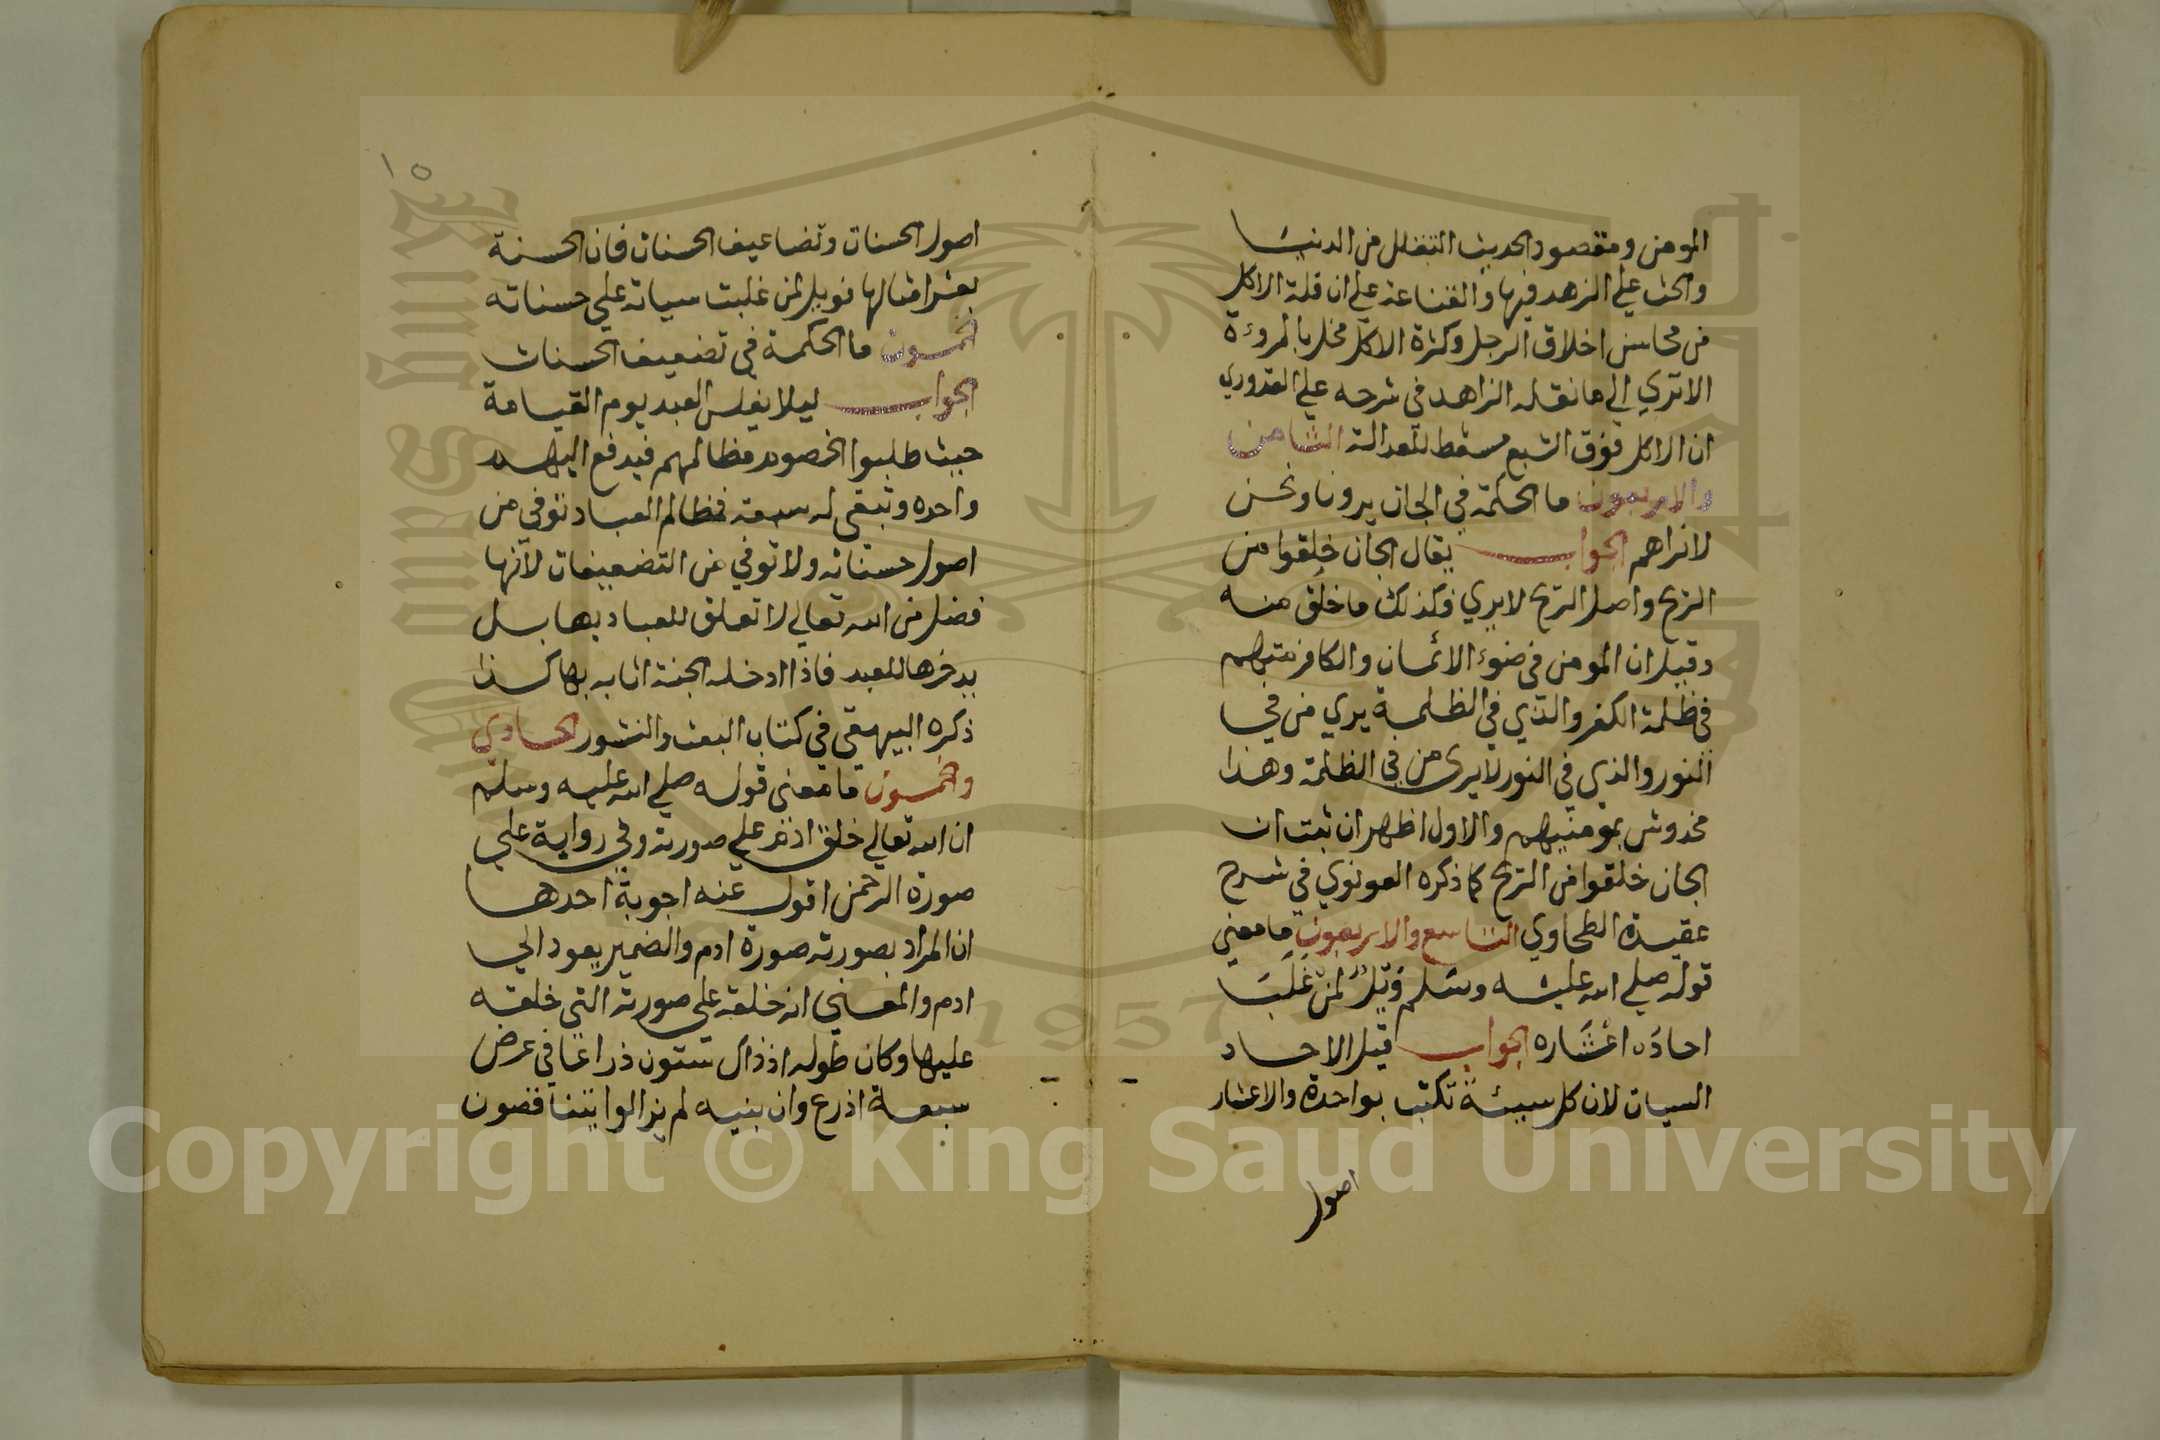 المومن ومقصود الحديث التقلل من الدنيا
والحث علي الزهد فيها والقناعة علي ان قلة الاكل
من محاسن اخلاق الرجل وكثرة الاكل مخل بالمروءة
الاتري الي ما نقله الزاهد في شرحه علي القدوري
ان الاكل فوق الشبع مسقط للعدالة الثامن
والاربعون ما الحكمة في الجان يرونا ونحن
لانراهم الجواب يقال الجان خلقوا من
الريح واصل الريح لايري فكذلك ما خلق منه
وقيل ان المومن في ضوء الائمان والكافر منهم
في ظلمة الكفر والذي في الظلمة يري من في
النور والذي في النور لايرى من في الظلمة وهذا
مخدوش بمومنيهم والاول اظهر ان ثبت ان
الجان خلقوا من الريح كما ذكره القونوي في شرح
عقيدة الطحاوي التاسع والاربعون ما معني
قوله صلي الله عليه وسلم ويل لمن غلب
احاده اعشاره الجواب قيل الاحاد
السيات لان كل سيئة تكتب بواحدة والاعشار
اصول
١٥
اصول الحسنات وتضاعيف الحسنات فان الحسنة
بعشر امثالها فويل لمن غلبت سياته علي حسناته
الخمسون ما الحكمة في تضعيف الحسنات
الجواب ليلا يفلس العبد يوم القيامة
حيث طلبوا الخصوم مظالمهم فيدفع اليهم
واحده وتبقى له سبعة فمظالم العباد توفي من
اصول حسناته ولا توفي من التضعيفات لانها
فضل من الله تعالي لا تعلق للعباد بها بل
يدخرها للعبد فاذا ادخله الجنة اثابه بها كذا
ذكره البيهقي في كتاب البعث والنشور الحادي
والخمسون ما معني قوله صلي الله عليه وسلم
ان الله تعالي خلق ادم علي صورته وفي رواية علي
صورة الرحمن اقول عنه اجوبة احدها
ان المراد بصورته صورة ادم والضمير يعود الي
ادم والمعني انه خلقه علي صورته التي خلقه
عليها وكان طوله اذ ذاك ستون ذراعا في عرض
سبعة اذرع وان بنيه لم يزالوا يتناقصون
Copyright © King Saud University
King Saud University
1957